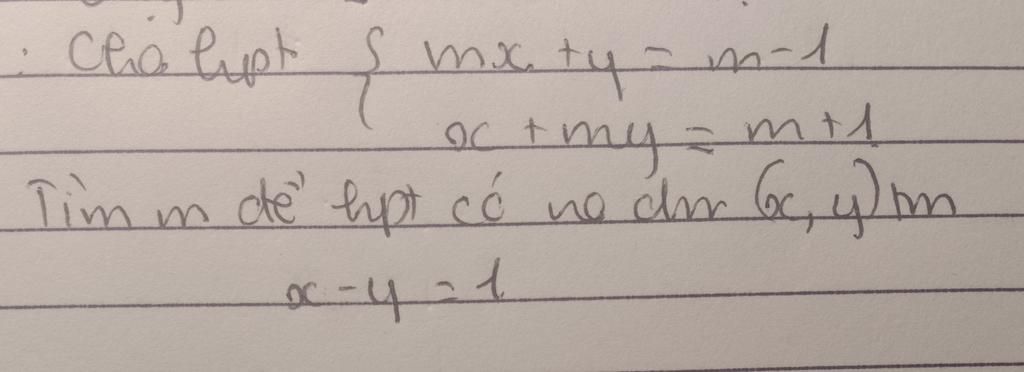 : Cho hpt { mx + y = m - 1
x + my = m + 1
Tìm m để hpt có no dn (x, y) tm
x - y = 1